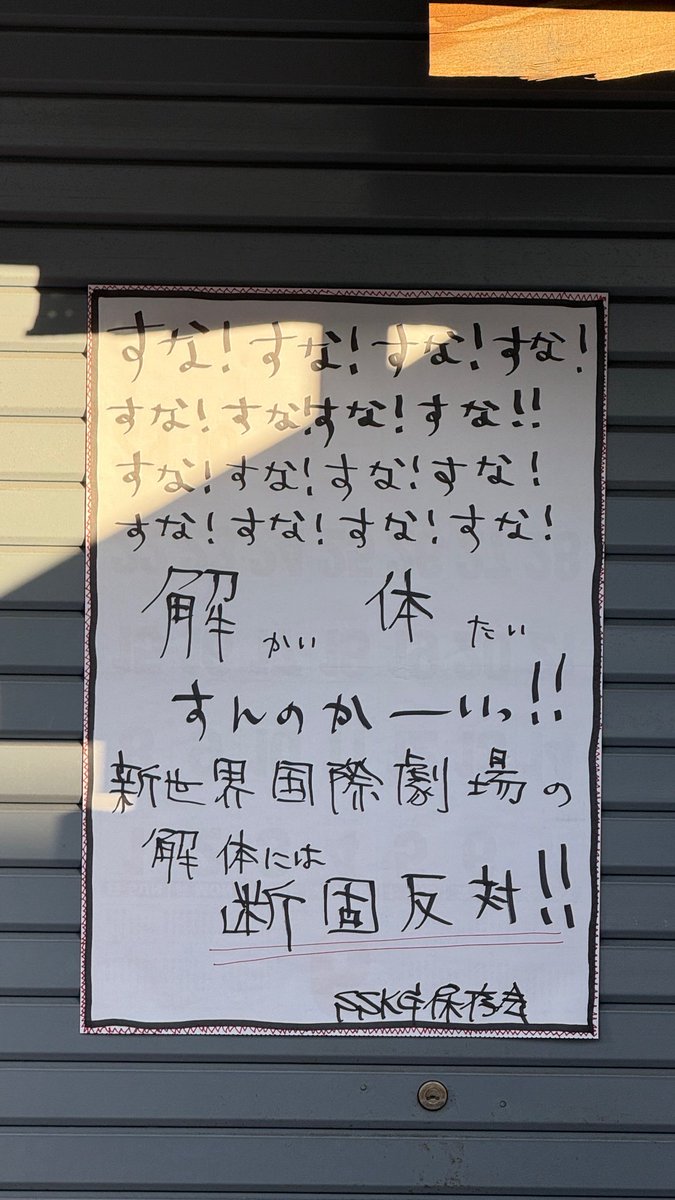 すな!すな!すな!すな!
すな!すな!すな!すな!!
すな!すな!すな!すな!
すな!すな!すな!すな!
解かい 体たい
すんのかーいっ!!
新世界国際劇場の
解体には
断固反対!!
SSKG保存会